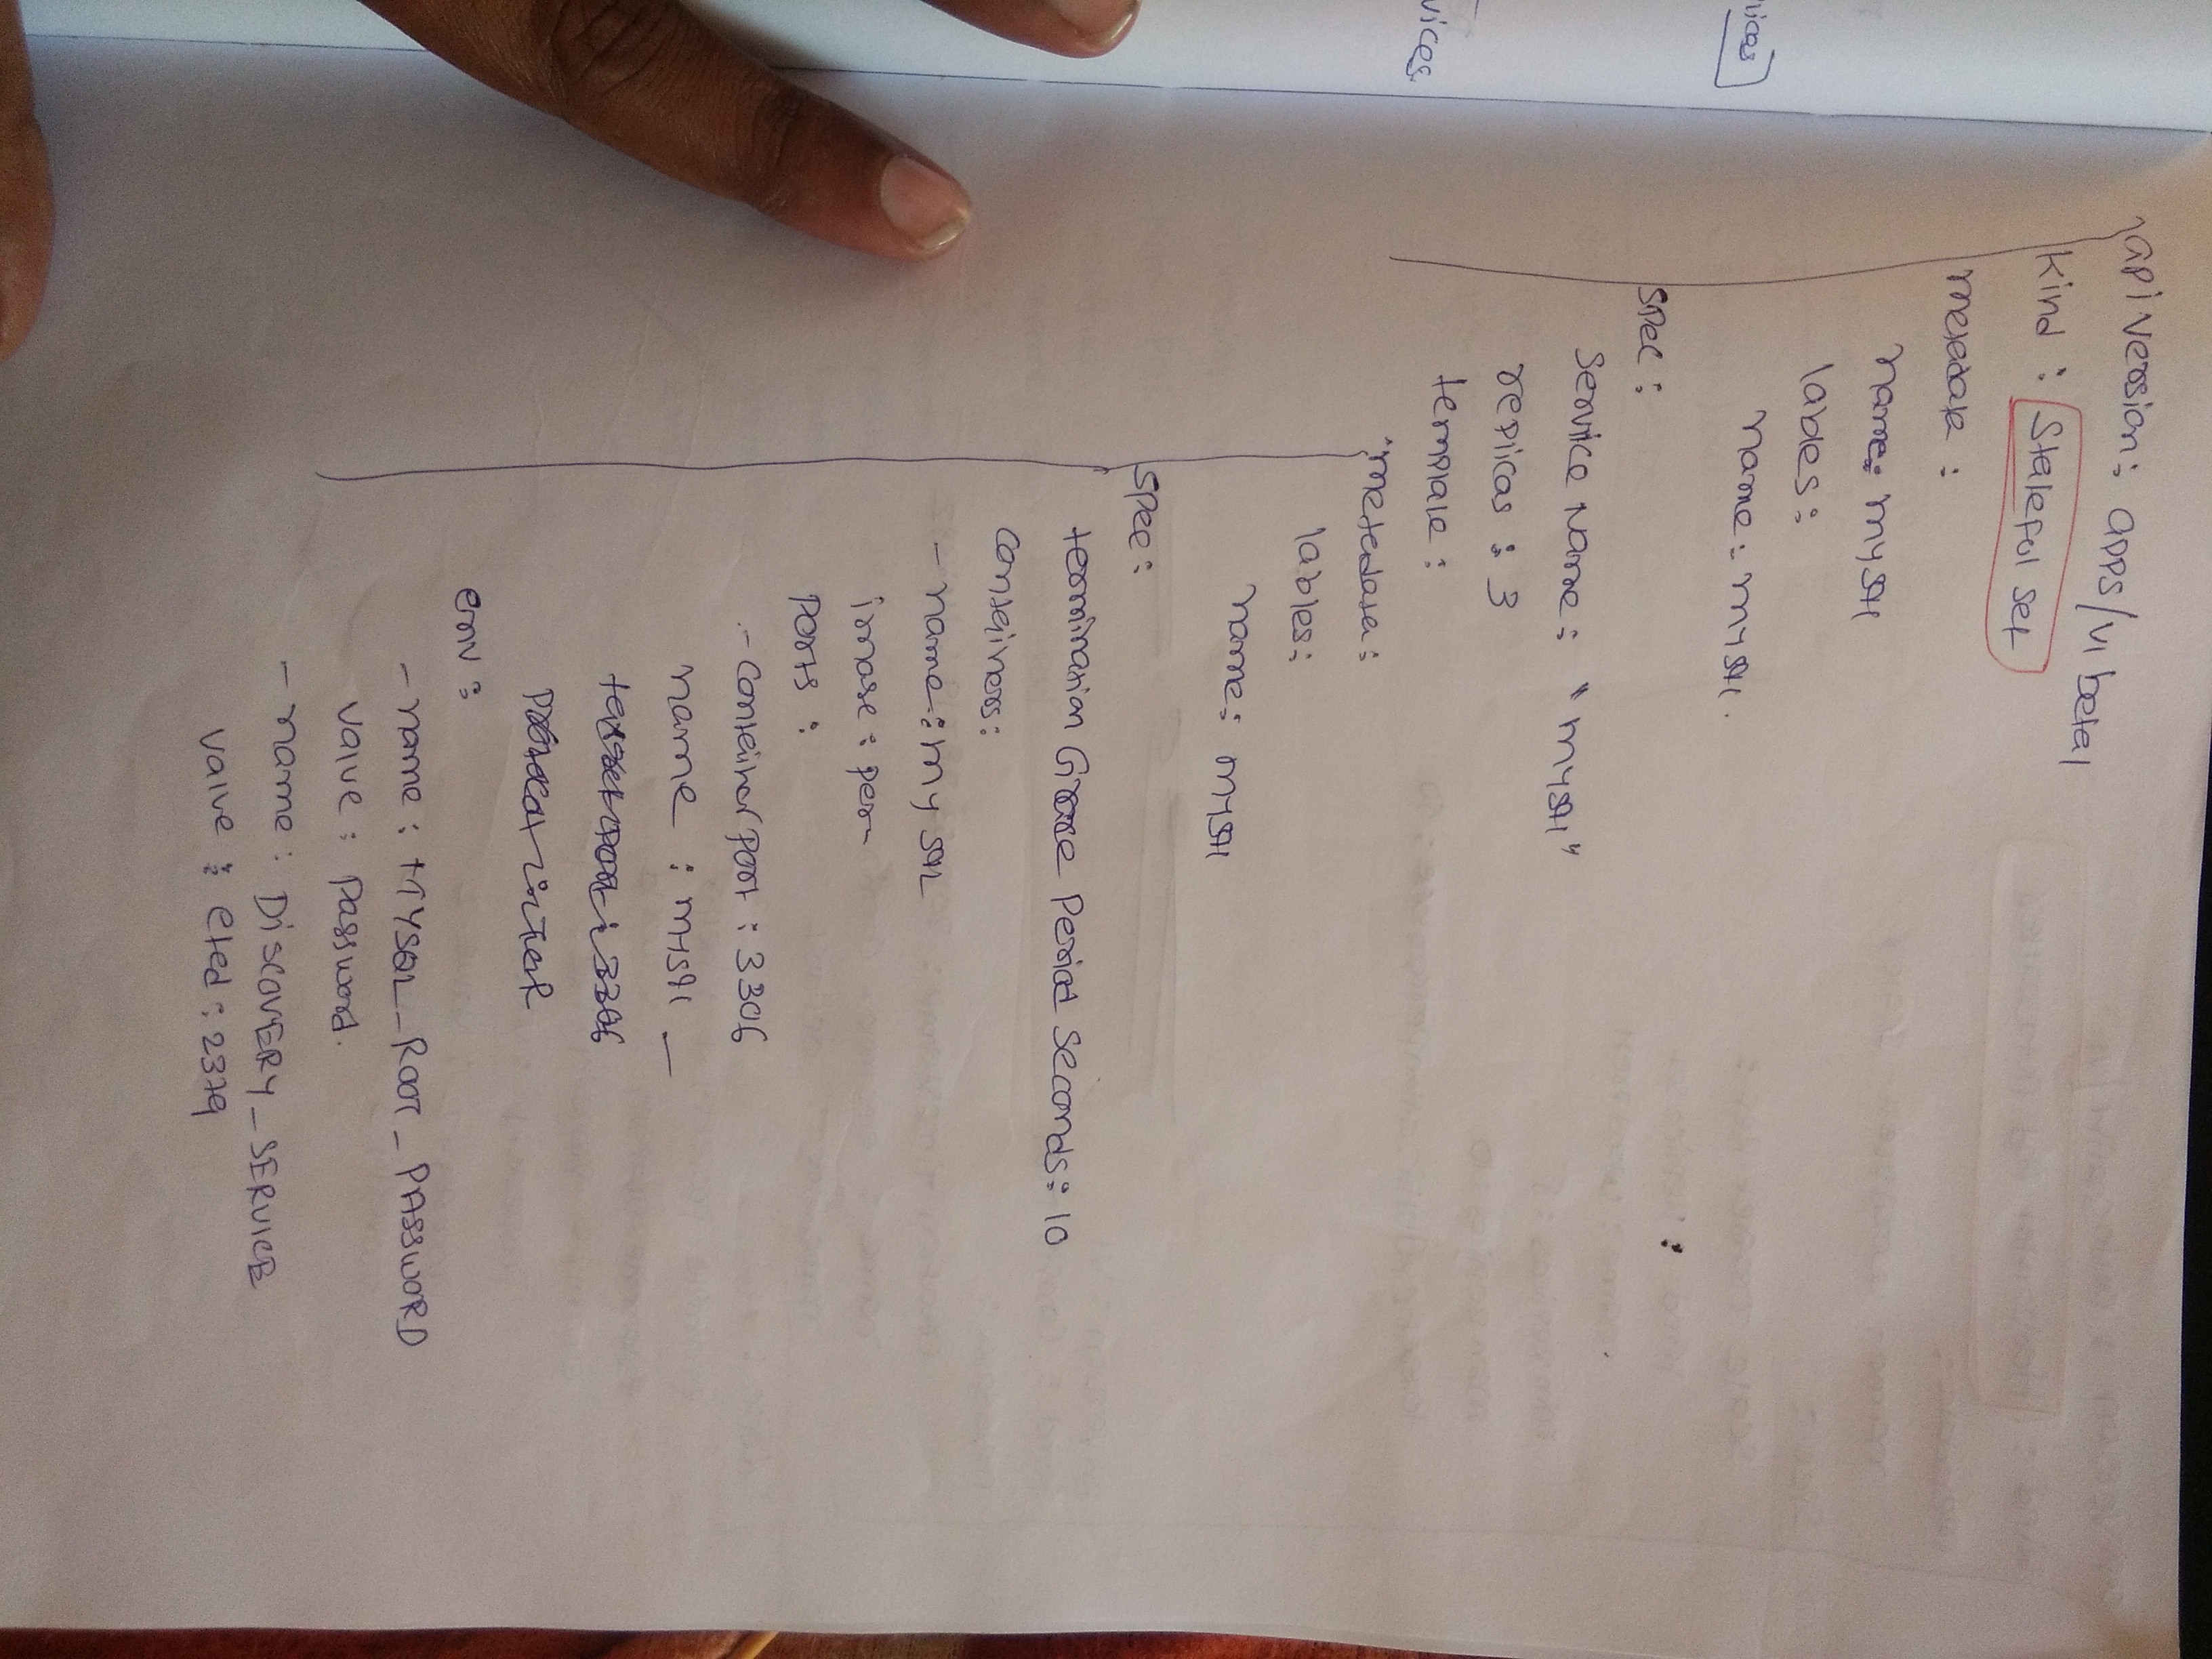 api version: apps/v1 beta1
kind : Stateful set
metadata :
name: mysql
lables:
name: mysql.
spec :
service Name: "mysql"
replicas : 3
template :
metadata:
lables:
name: mysql
spec:
termination Grace Period Seconds: 10
containers:
- name: my SQL
image : per-
ports :
- container port : 3306
name : mysql -
target port : 3306
protocol : TCP
env :
- name: MYSQL_ROOT_PASSWORD
value: password.
- name: DISCOVERY_SERVICE
value : etcd : 2379
vices
vices